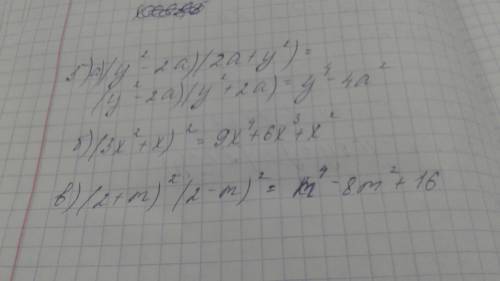 5) а) (y² - 2a)(2a + y²) =
(y² - 2a)(y² + 2a) = y⁴ - 4a²
б) (3x² + x)² = 9x⁴ + 6x³ + x²
в) (2 + m)² (2 - m)² = m⁴ - 8m² + 16